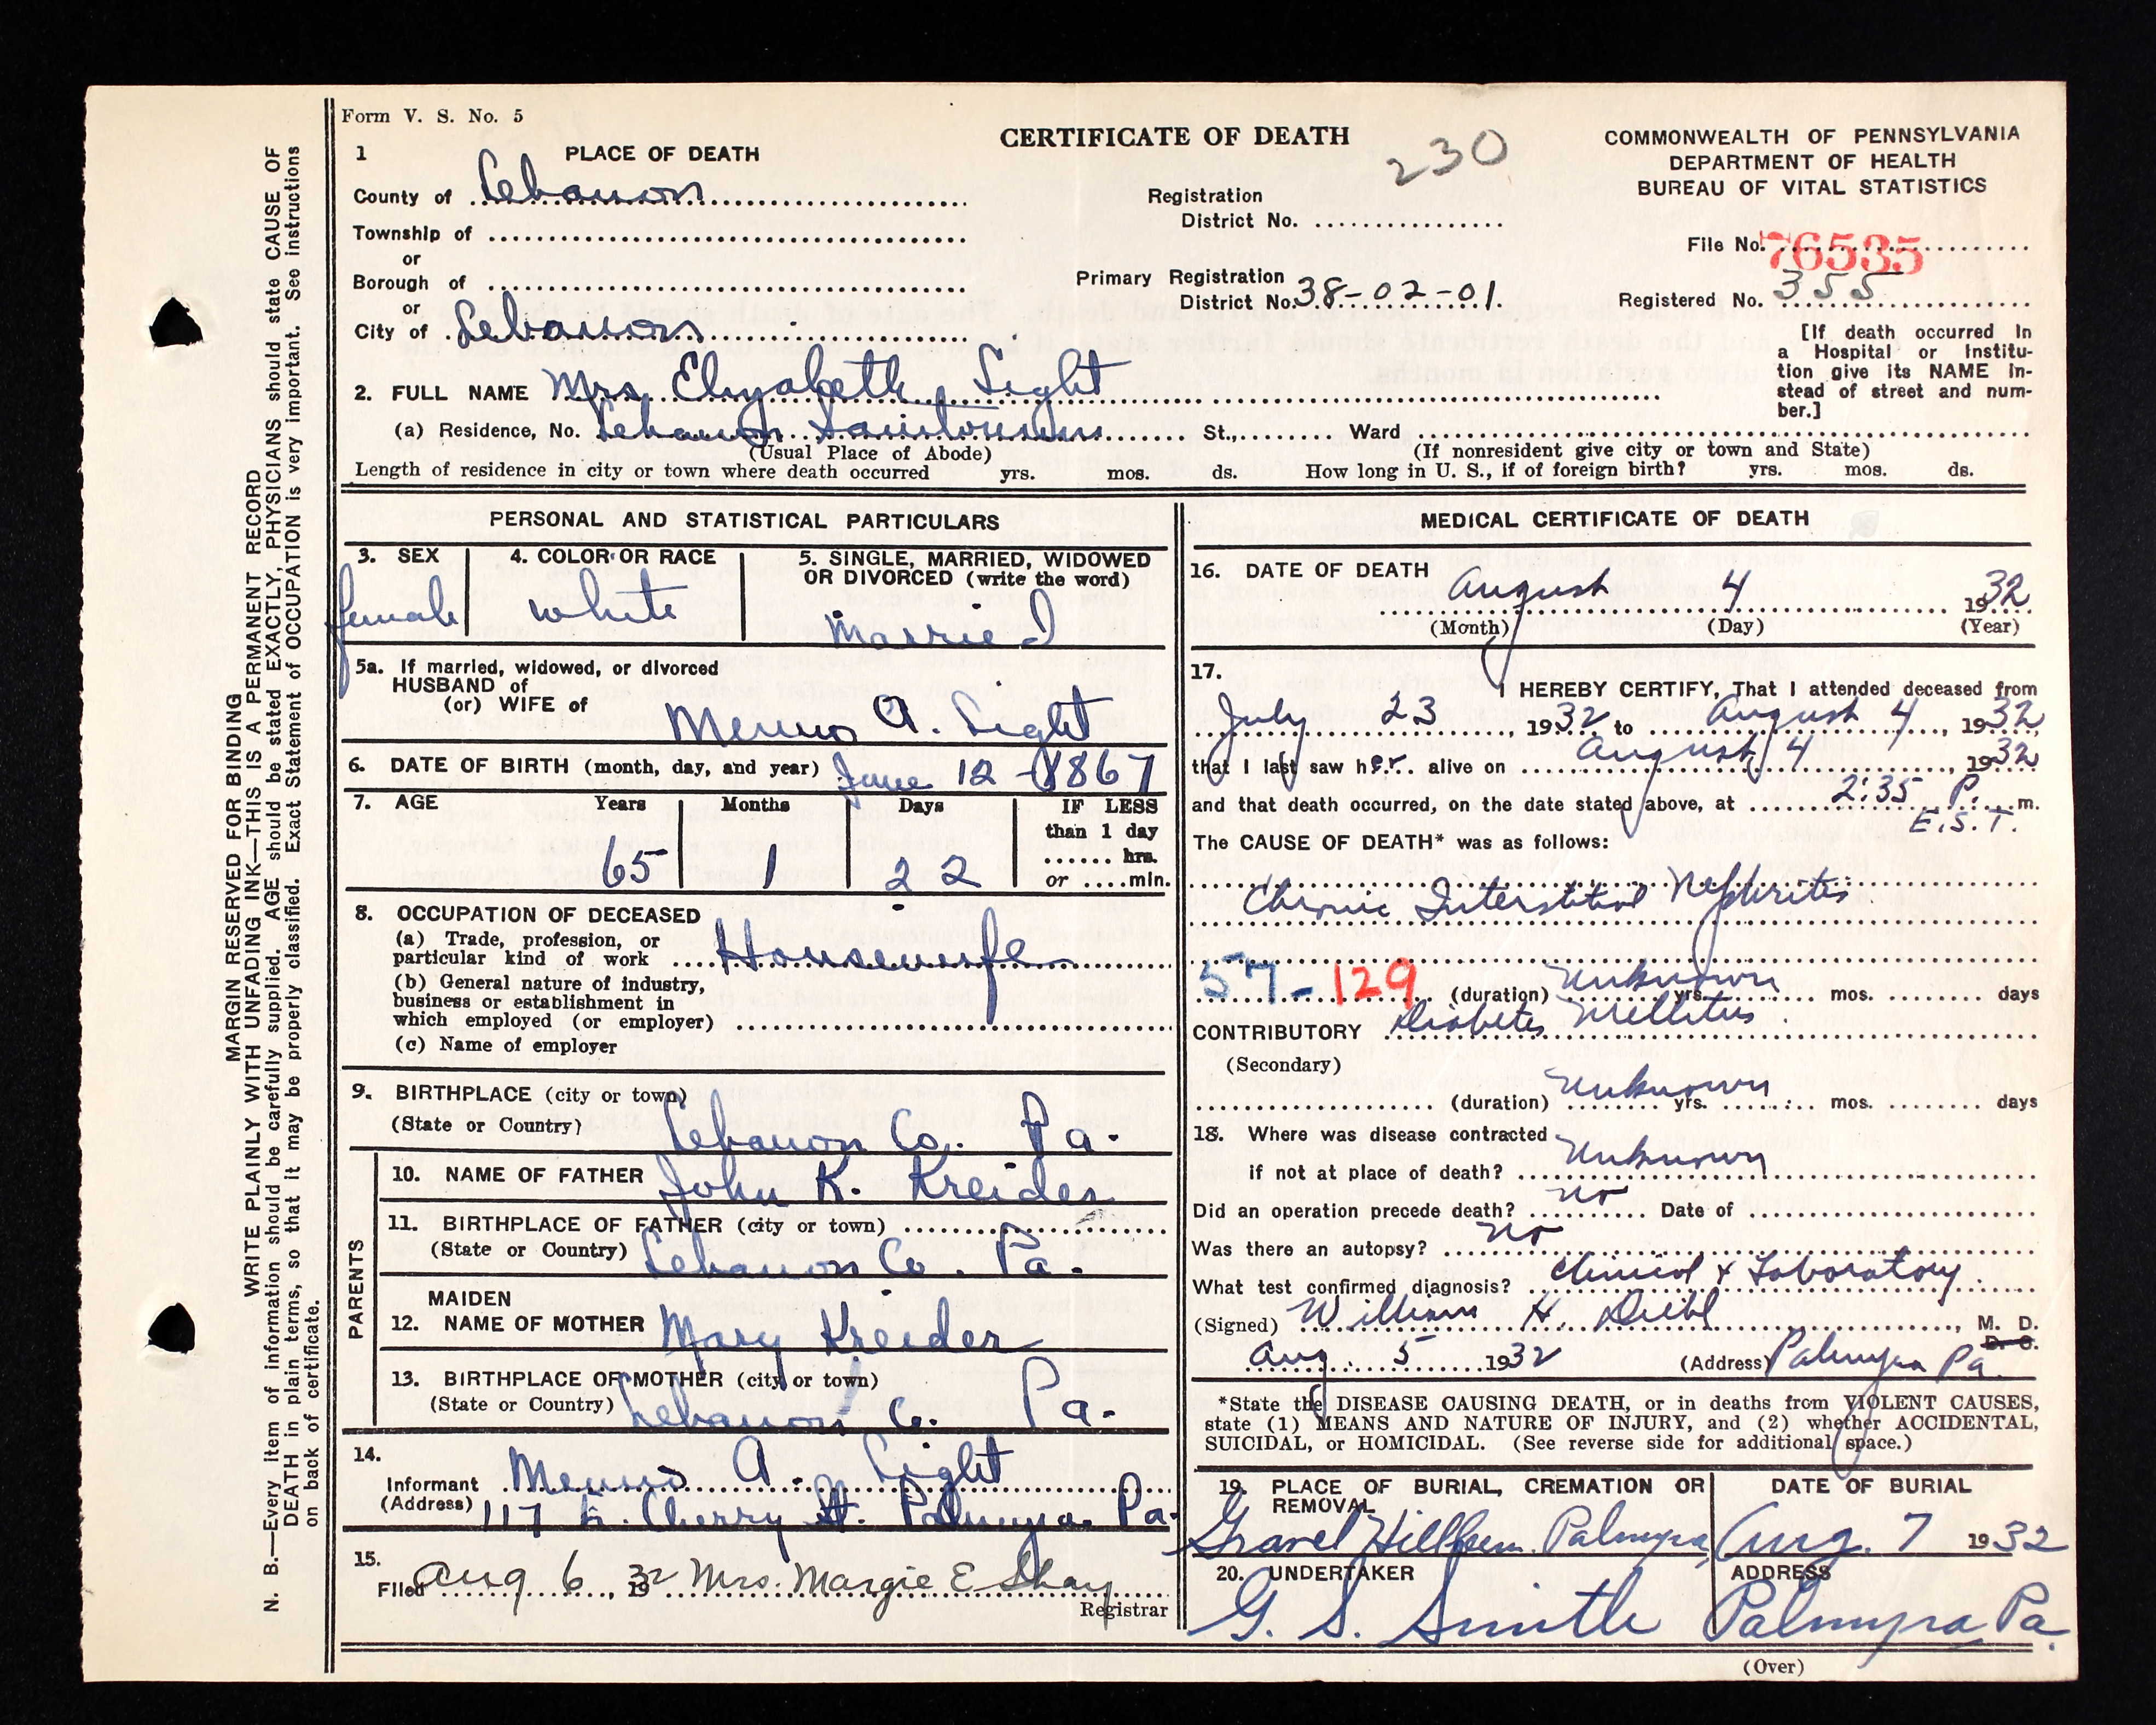 MARGIN RESERVED FOR BINDING
WRITE PLAINLY WITH UNFADING INK—THIS IS A PERMANENT RECORD
N. B.—Every item of information should be carefully supplied. AGE should be stated EXACTLY, PHYSICIANS should state CAUSE OF
DEATH in plain terms, so that it may be properly classified. Exact Statement of OCCUPATION is very important. See instructions
on back of certificate.
Form V. S. No. 5
CERTIFICATE OF DEATH
230
COMMONWEALTH OF PENNSYLVANIA
DEPARTMENT OF HEALTH
BUREAU OF VITAL STATISTICS
1 PLACE OF DEATH
County of Lebanon
Township of
or
Borough of
or
City of Lebanon
Registration
District No.
Primary Registration
District No. 38-02-01.
File No. 76535
Registered No. 355
[If death occurred in
a Hospital or Institu-
tion give its NAME in-
stead of street and num-
ber.]
2. FULL NAME Mrs. Elizabeth Light
(a) Residence, No. Lebanon Sanitorium St., Ward
(Usual Place of Abode) (If nonresident give city or town and State)
Length of residence in city or town where death occurred yrs. mos. ds. How long in U. S., if of foreign birth? yrs. mos. ds.
PERSONAL AND STATISTICAL PARTICULARS
3. SEX 4. COLOR OR RACE 5. SINGLE, MARRIED, WIDOWED
OR DIVORCED (write the word)
female white Married
5a. If married, widowed, or divorced
HUSBAND of
(or) WIFE of Menno A. Light
6. DATE OF BIRTH (month, day, and year) June 12 - 1867
7. AGE Years Months Days IF LESS
than 1 day
...... hrs.
or ....min.
65 1 22
8. OCCUPATION OF DECEASED
(a) Trade, profession, or
particular kind of work Housewife
(b) General nature of industry,
business or establishment in
which employed (or employer)
(c) Name of employer
9. BIRTHPLACE (city or town)
(State or Country) Lebanon Co. Pa.
PARENTS
10. NAME OF FATHER John K. Kreider
11. BIRTHPLACE OF FATHER (city or town)
(State or Country) Lebanon Co. Pa.
MAIDEN
12. NAME OF MOTHER Mary Kreider
13. BIRTHPLACE OF MOTHER (city or town)
(State or Country) Lebanon Co. Pa.
14.
Informant Menno A. Light
(Address) 117 E. Cherry St. Palmyra Pa.
15.
Filed Aug 6, 1932 Mrs. Margie E Shay
Registrar
MEDICAL CERTIFICATE OF DEATH
16. DATE OF DEATH
August 4 1932
(Month) (Day) (Year)
17.
I HEREBY CERTIFY, That I attended deceased from
July 23, 1932 to August 4, 1932,
that I last saw her alive on August 4, 1932
and that death occurred, on the date stated above, at 2:35 P. m.
E.S.T.
The CAUSE OF DEATH* was as follows:
Chronic Interstitial Nephritis
57-129 (duration) Unknown yrs. mos. days
CONTRIBUTORY Diabetes Mellitus
(Secondary)
(duration) Unknown yrs. mos. days
18. Where was disease contracted
if not at place of death? Unknown
Did an operation precede death? no Date of
Was there an autopsy? no
What test confirmed diagnosis? Clinical & Laboratory
(Signed) William H. Diehl, M. D.
D. O.
Aug. 5 1932 (Address) Palmyra Pa
*State the DISEASE CAUSING DEATH, or in deaths from VIOLENT CAUSES,
state (1) MEANS AND NATURE OF INJURY, and (2) whether ACCIDENTAL,
SUICIDAL, or HOMICIDAL. (See reverse side for additional space.)
19. PLACE OF BURIAL, CREMATION OR
REMOVAL
DATE OF BURIAL
Gravel Hill Cem. Palmyra Aug. 7 1932
20. UNDERTAKER ADDRESS
G. S. Smith Palmyra, Pa.
(Over)